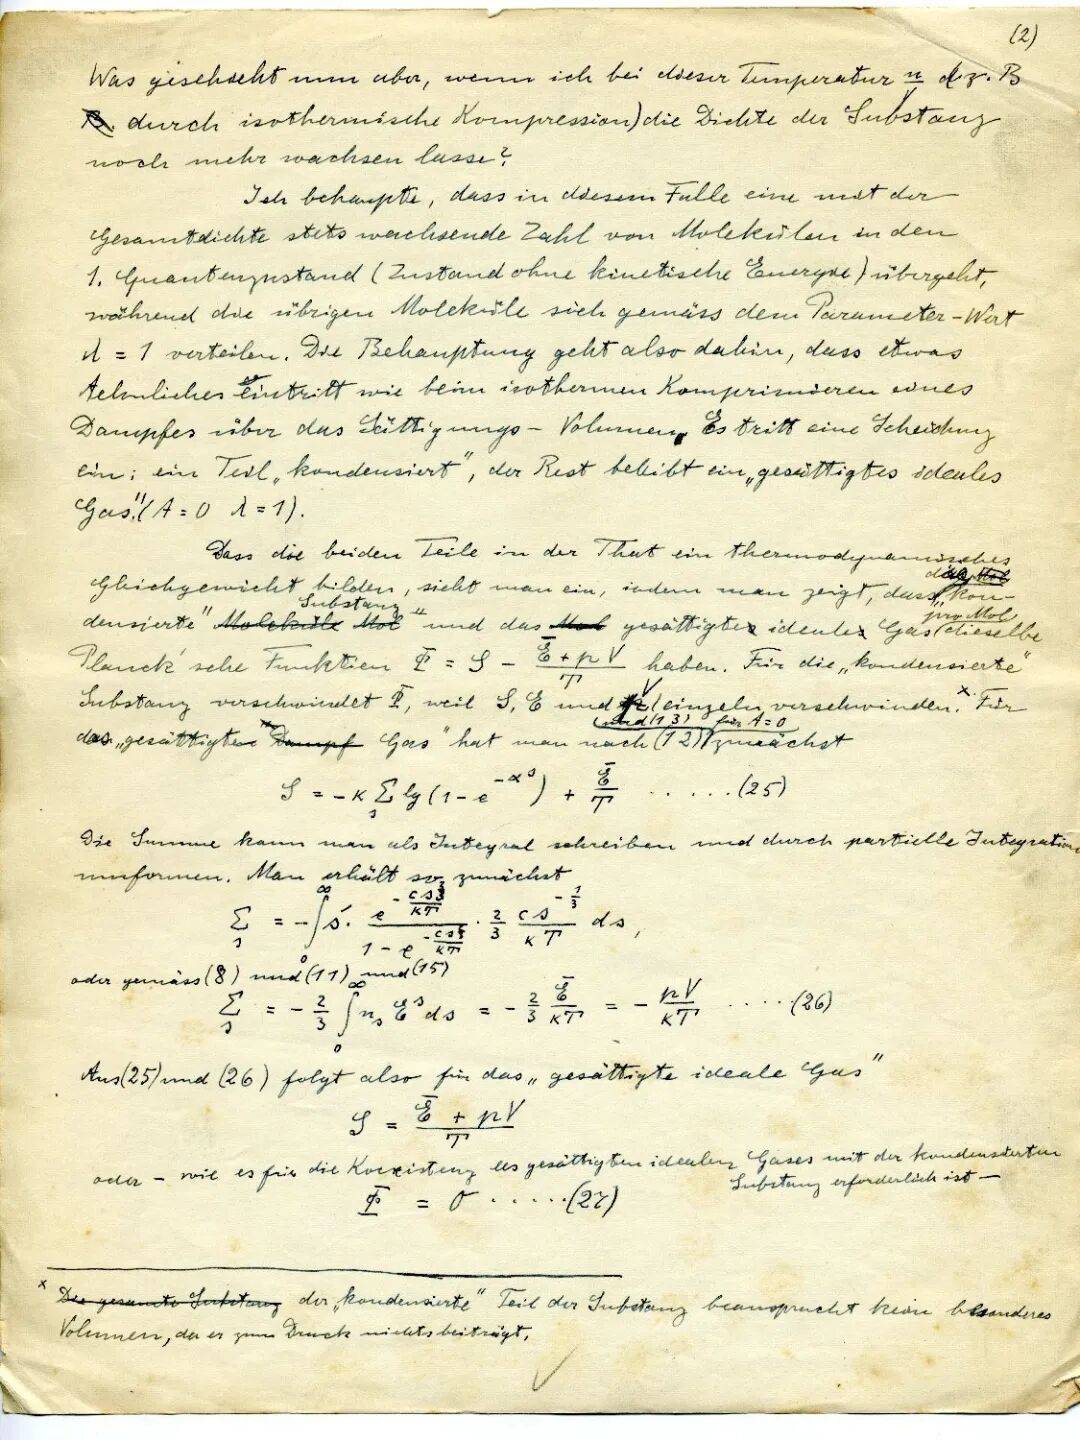 (2)
Was geschieht nun aber, wenn ich bei dieser Temperatur n/V (z. B.
B. durch isothermische Kompression) die Dichte der Substanz
noch mehr wachsen lasse?
Ich behaupte, dass in diesem Falle eine mit der
Gesamtdichte stets wachsende Zahl von Molekülen in den
1. Quantenzustand (Zustand ohne kinetische Energie) übergeht,
während die übrigen Moleküle sich gemäss dem Parameter-Wert
λ = 1 verteilen. Die Behauptung geht also dahin, dass etwas
Aehnliches eintritt wie beim isothermen Komprimieren eines
Dampfes über das Sättigungs-Volumen. Es tritt eine Scheidung
ein; ein Teil „kondensiert", der Rest bleibt ein „gesättigtes ideales
Gas". (A = 0 λ = 1).
Dass die beiden Teile in der That ein thermodynamisches
Gleichgewicht bilden, sieht man ein, indem man zeigt, dass die „kon-
densierte" Moleküle Mol Substanz" und das Mol gesättigte ideale Gas pro Mol dieselbe
Planck'sche Funktion Φ̄ = S − (Ē + pV)/T haben. Für die „kondensierte"
Substanz verschwindet Φ̄, weil S, E und V einzeln verschwinden.ˣ Für
das „gesättigte Dampf Gas" hat man nach (12) und (13) für A = 0 zunächst
S = −κ Σₛ lg (1 − e^(−αˢ)) + Ē/T ......(25)
Die Summe kann man als Integral schreiben und durch partielle Integration
umformen. Man erhält so zunächst
Σₛ = −∫₀^∞ s · e^(−cs^(2/3)/κT) / (1 − e^(−cs^(2/3)/κT)) · 2/3 cs^(−1/3)/κT ds,
oder gemäss (8) und (11) und (15)
Σₛ = −2/3 ∫₀^∞ nₛ Eˢ ds = −2/3 Ē/κT = − pV/κT .....(26)
Aus (25) und (26) folgt also für das „gesättigte ideale Gas"
S = (Ē + pV)/T
oder – wie es für die Koexistenz des gesättigten idealen Gases mit der kondensierten
Substanz erforderlich ist –
Φ̄ = 0 ......(27)
x Die gesamte Substanz der „kondensierte" Teil der Substanz beansprucht kein besonderes
Volumen, da er zum Druck nichts beiträgt.